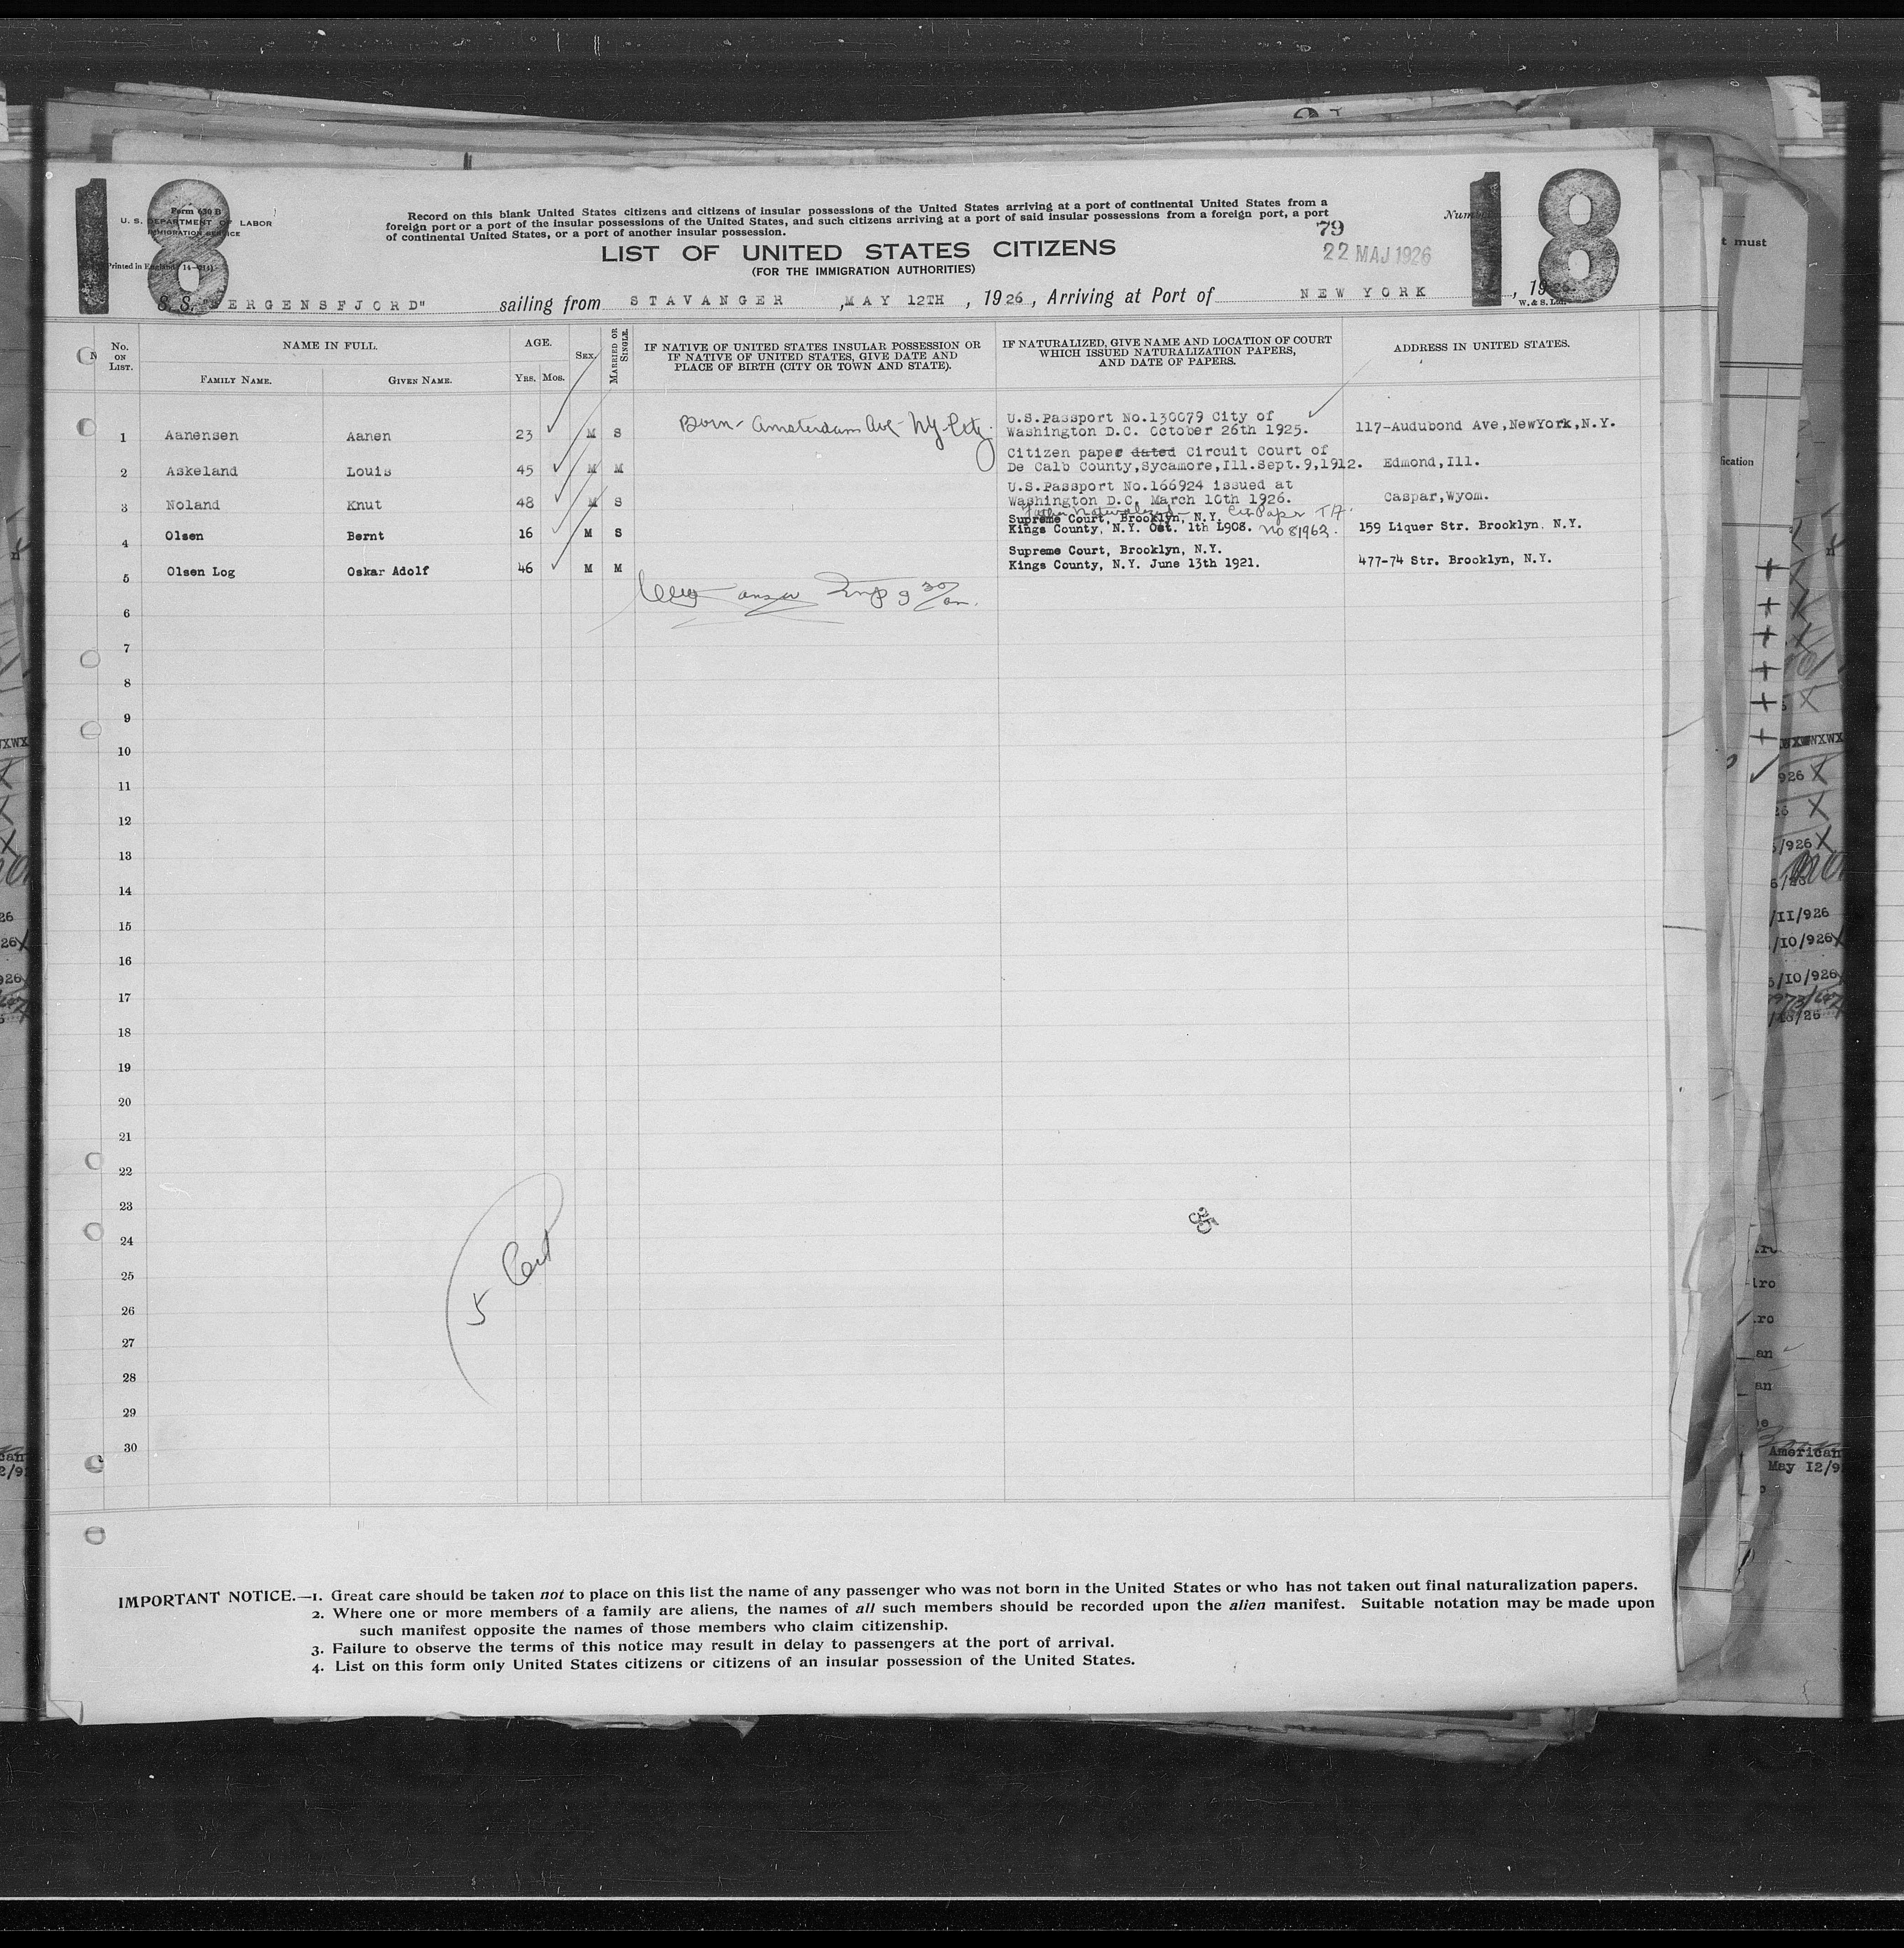 18
Form 630 B
U. S. DEPARTMENT OF LABOR
IMMIGRATION SERVICE
Printed in England
14—211
Record on this blank United States citizens and citizens of insular possessions of the United States arriving at a port of continental United States from a
foreign port or a port of the insular possessions of the United States, and such citizens arriving at a port of said insular possessions from a foreign port, a port
of continental United States, or a port of another insular possession.
79
22 MAJ 1926
18
LIST OF UNITED STATES CITIZENS
(FOR THE IMMIGRATION AUTHORITIES)
S. S. "BERGENSFJORD" sailing from STAVANGER, MAY 12TH, 1926, Arriving at Port of NEW YORK, 19
W. & S. Ltd.
No. ON LIST.
NAME IN FULL.
FAMILY NAME. GIVEN NAME.
AGE.
YRS. MOS.
SEX.
MARRIED OR SINGLE.
IF NATIVE OF UNITED STATES INSULAR POSSESSION OR
IF NATIVE OF UNITED STATES, GIVE DATE AND
PLACE OF BIRTH (CITY OR TOWN AND STATE).
IF NATURALIZED, GIVE NAME AND LOCATION OF COURT
WHICH ISSUED NATURALIZATION PAPERS,
AND DATE OF PAPERS.
ADDRESS IN UNITED STATES.
1 Aanensen Aanen 23 M S Born - Amsterdam Ave - NY City. U.S.Passport No.130079 City of
Washington D.C. October 26th 1925. 117-Audubond Ave,NewYork,N.Y.
2 Askeland Louis 45 M M Citizen paper dated Circuit Court of
De Calb County,Sycamore,Ill.Sept.9,1912. Edmond,Ill.
3 Noland Knut 48 M S U.S.Passport No.166924 issued at
Washington D.C. March 10th 1926. Caspar,Wyom.
Father Naturalized - Cit Paper
4 Olsen Bernt 16 M S Supreme Court, Brooklyn, N.Y.
Kings County, N.Y. Oct. 1th 1908. No 81963. 159 Liquer Str. Brooklyn, N.Y.
5 Olsen Log Oskar Adolf 46 M M Supreme Court, Brooklyn, N.Y.
Kings County, N.Y. June 13th 1921. 477-74 Str. Brooklyn, N.Y.
6
7
8
9
10
11
12
13
14
15
16
17
18
19
20
21
22
23
24
25
26
27
28
29
30
35
IMPORTANT NOTICE.—1. Great care should be taken not to place on this list the name of any passenger who was not born in the United States or who has not taken out final naturalization papers.
2. Where one or more members of a family are aliens, the names of all such members should be recorded upon the alien manifest. Suitable notation may be made upon
such manifest opposite the names of those members who claim citizenship.
3. Failure to observe the terms of this notice may result in delay to passengers at the port of arrival.
4. List on this form only United States citizens or citizens of an insular possession of the United States.
t must
926
/926
/II/926
/10/926
/10/926
American
May I2/9